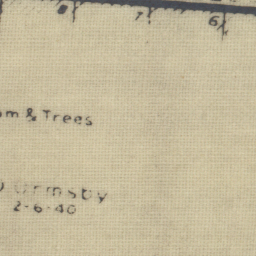 8 7 6
om & Trees
D Ormsby
2-6-40